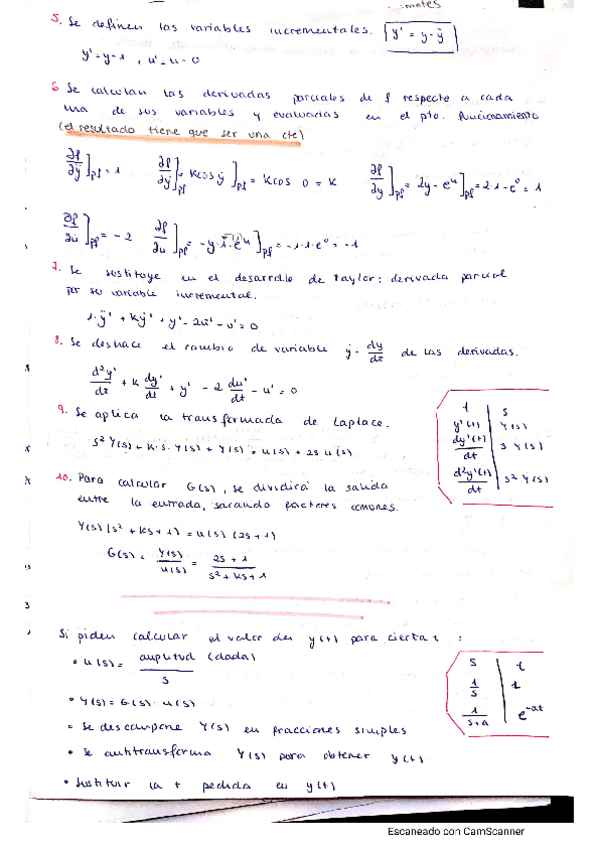 5. Se definen las variables incrementales. y' = y - ȳ
y' = y - 1 , u' = u - 0
6 Se calculan las derivadas parciales de f respecte a cada
una de sus variables y evaluadas en el pto. funcionamiento
(el resultado tiene que ser una cte)
∂f/∂ÿ]pf = 1   ∂f/∂ẏ]pf = K cos ẏ]pf = K cos 0 = K   ∂f/∂y]pf = 2y - e^u]pf = 2·1 - e^0 = 1
∂f/∂u̇]pf = -2   ∂f/∂u]pf = -y·1·e^u]pf = -1·1·e^0 = -1
7. Se sustituye en el desarrollo de Taylor: derivada parcial
por su variable incremental.
1·ÿ' + Kẏ' + y' - 2u̇' - u' = 0
8. Se deshace el cambio de variable ẏ = dy/dt de las derivadas.
d²y'/dt + K dy'/dt + y' - 2 du'/dt - u' = 0
9. Se aplica la transformada de Laplace.
s² Y(s) + K·s·Y(s) + Y(s) = u(s) + 2s u(s)
t | s
y'(t) | Y(s)
dy'(t)/dt | s Y(s)
d²y'(t)/dt | s² Y(s)
10. Para calcular G(s), se dividirá la salida
entre la entrada, sacando factores comunes.
Y(s) (s² + Ks + 1) = u(s) (2s + 1)
G(s) = Y(s)/u(s) = 2s + 1 / s² + Ks + 1
Si piden calcular el valor de y(t) para cierta t :
• u(s) = amplitud (dada) / s
• Y(s) = G(s) · u(s)
• Se descompone Y(s) en fracciones simples
• se antitransforma Y(s) para obtener y(t)
• Sustituir la t pedida en y(t)
s | t
1/s | 1
1/s+a | e^-at
Escaneado con CamScanner